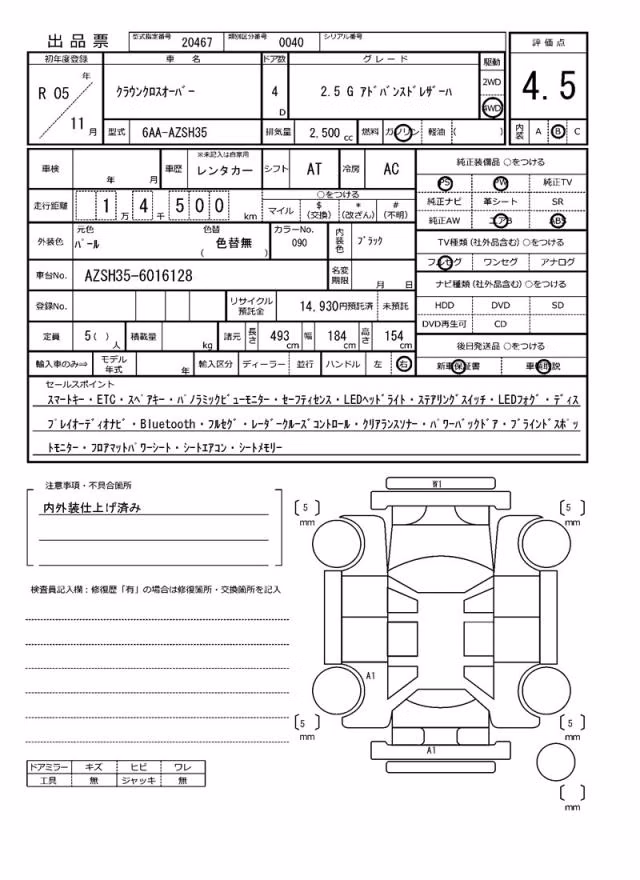 出品票 型式指定番号 20467 類別区分番号 0040 シリアル番号
評価点
4.5
初年度登録 車名 ドア数 グレード 駆動
R 05 年 クラウンクロスオーバー 4 D 2.5 G アドバンスドレザーハ 2WD
4WD
11 月 型式 6AA-AZSH35 排気量 2,500 cc 燃料 ガソリン 軽油 ( )
内装 A B C
車検 年 月 車歴 ※未記入は自家用 レンタカー シフト AT 冷房 AC
走行距離 1 万 4 千 5 0 0 km
○をつける
マイル $(交換) *(改ざん) #(不明)
外装色 元色 パール 色替 色替無 ( ) カラーNo. 090 内装色 ブラック
車台No. AZSH35-6016128 名変期限 月 日
登録No. リサイクル預託金 14,930円預託済 未預託
定員 5( )人 積載量 kg 諸元 長さ 493 cm 幅 184 cm 高さ 154 cm
輸入車のみ⇒ モデル年式 年 輸入区分 ディーラー 並行 ハンドル 左 右
純正装備品 ○をつける
PS PW 純正TV
純正ナビ 革シート SR
純正AW エアB ABS
TV種類(社外品含む)○をつける
フルセグ ワンセグ アナログ
ナビ種類(社外品含む)○をつける
HDD DVD SD
DVD再生可 CD
後日発送品 ○をつける
新車保証書 車輌取説
セールスポイント
スマートキー・ETC・スペアキー・パノラミックビューモニター・セーフティセンス・LEDヘッドライト・ステアリングスイッチ・LEDフォグ・ディス
プレイオーディオナビ・Bluetooth・フルセグ・レーダークルーズコントロール・クリアランスソナー・パワーバックドア・ブラインドスポッ
トモニター・フロアマットパワーシート・シートエアコン・シートメモリー
注意事項・不具合箇所
内外装仕上げ済み
検査員記入欄:修復歴「有」の場合は修復箇所・交換箇所を記入
ドアミラー キズ ヒビ ワレ
工具 無 ジャッキ 無
W1
[ 5 ] mm
[ 5 ] mm
A1
[ 5 ] mm
[ 5 ] mm
A1
[ ] mm